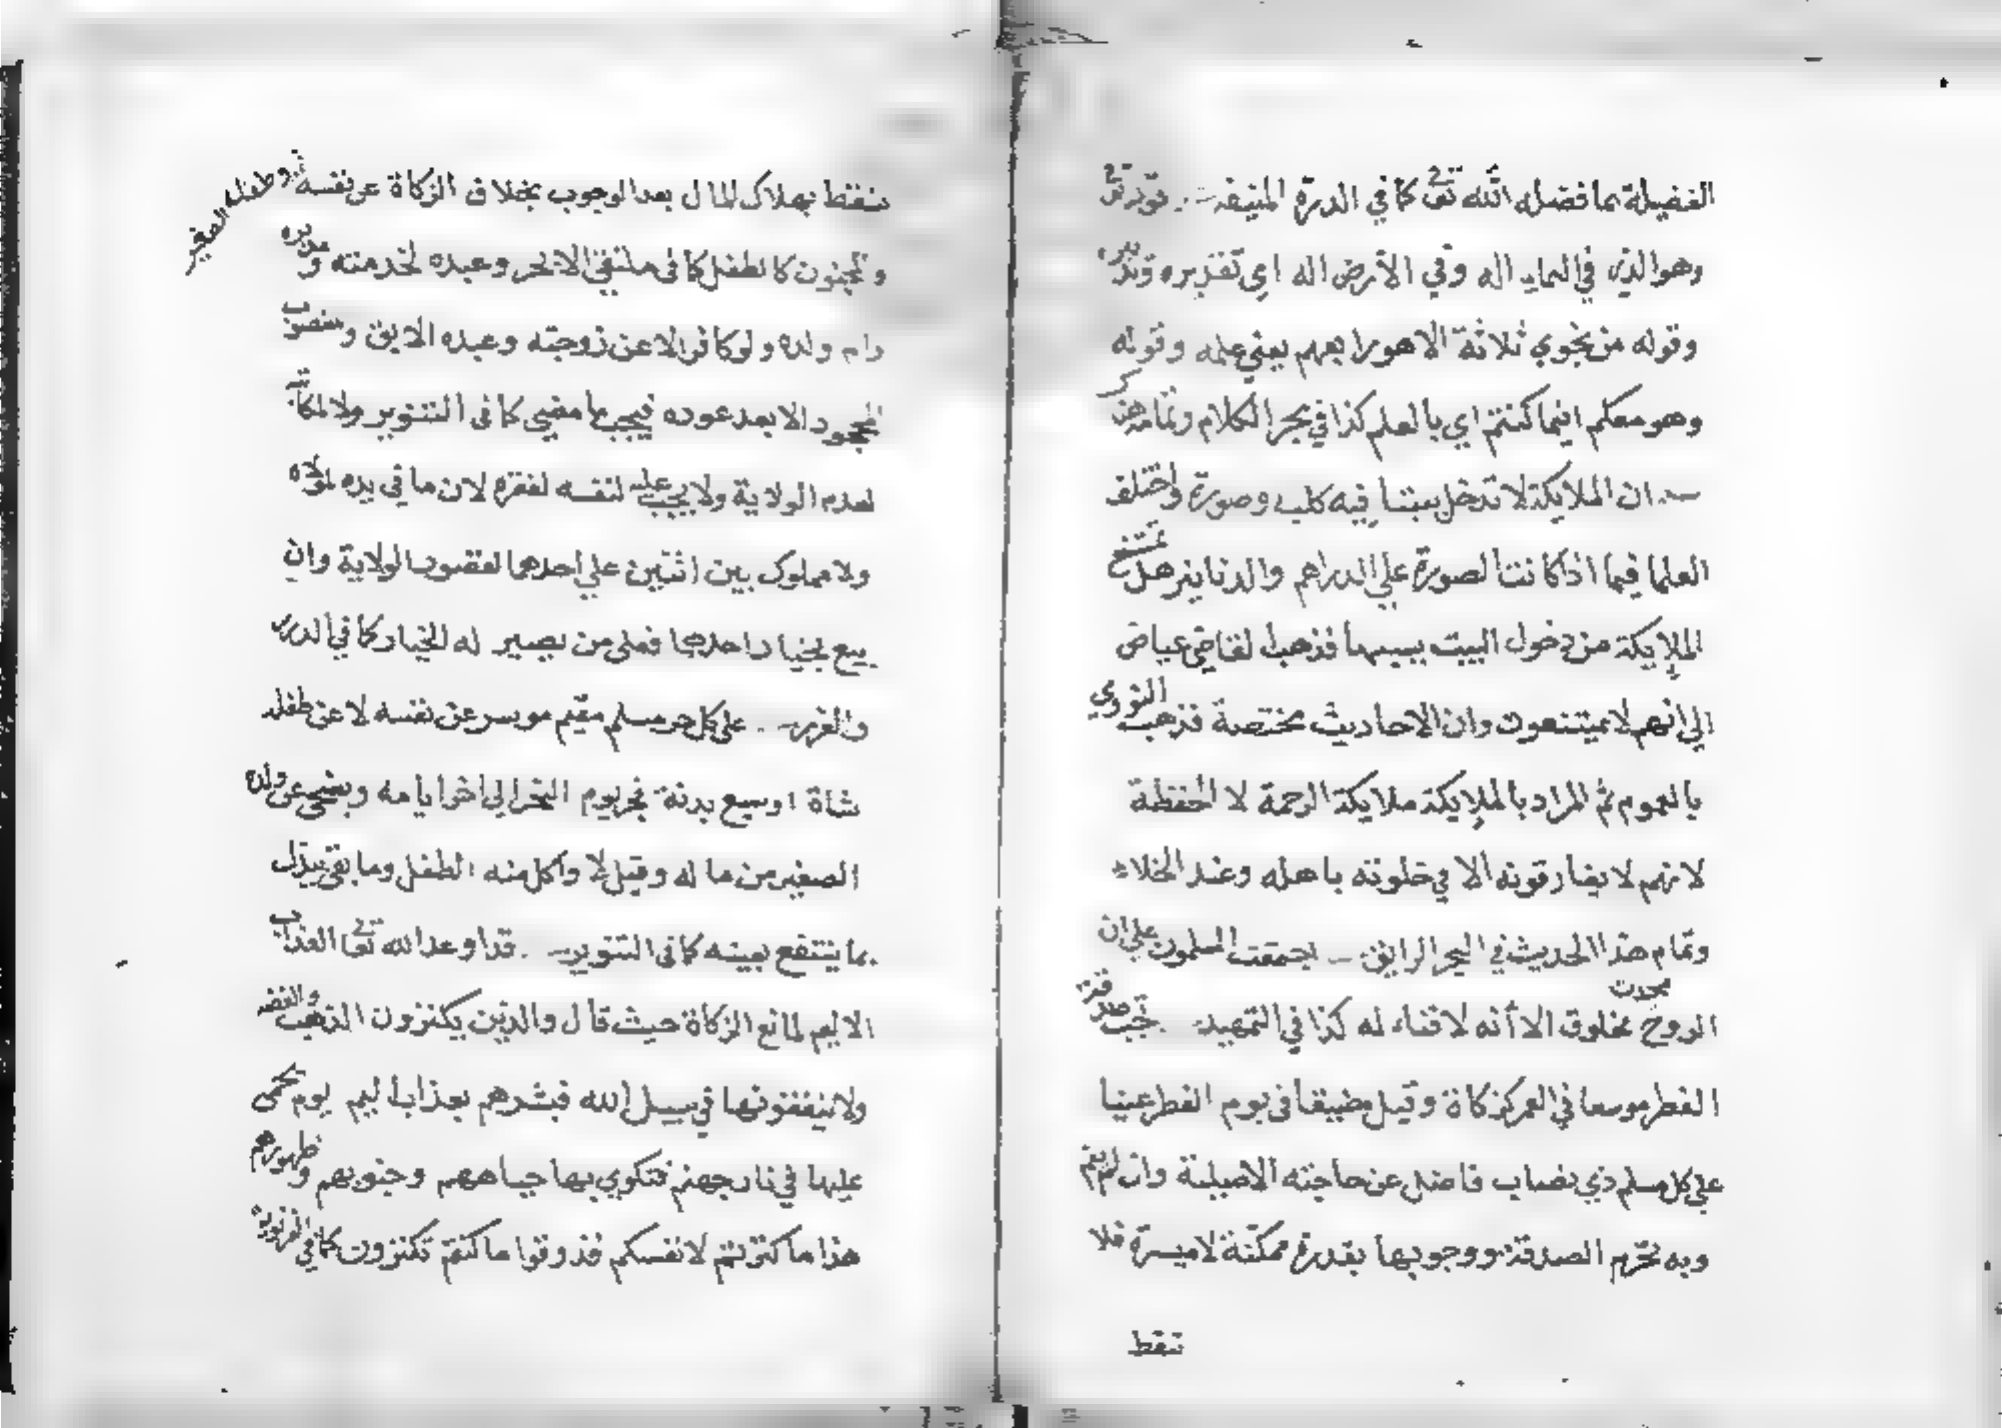 الفضيلة بما فضله الله تعى كما في الدرة المنيفه قوله تعى
وهو الذي في السماء اله وفي الأرض اله اي تقديره وتدبيره
وقوله من نجوي ثلاثة الا هو رابعهم يعني علمه وقوله
وهو معكم اينما كنتم اي بالعلم كذا في بحر الكلام وتمامه
ان الملايكة لا تدخل بيتا فيه كلب وصورة واختلف
العلما فيما اذا كانت الصورة علي الدراهم والدنانير هل تمتنع
الملايكة من دخول البيت بسببها فذهب القاضي عياض
الي انهم لا يمتنعون وان الاحاديث مختصة فذهب النووي
بالعموم ثم المراد بالملايكة ملايكة الرحمة لا الحفظة
لانهم لا يفارقونه الا في خلوته باهله وعند الخلاء
وتمام هذا الحديث في البحر الرايق اجمعت المسلمون علي ان
الروح محدث مخلوق الا أنه لا فناء له كذا في التمهيد تجب صدقة
الفطر موسعا في العمر كزكاة وقيل مضيقا في يوم الفطر عينا
علي كل مسلم ذي نصاب فاضل عن حاجته الاصلية وان لم ينم
وبه تحرم الصدقة ووجوبها بقدرة ممكنة لا ميسرة فلا
تسقط
تسقط بهلاك المال بعد الوجوب بخلاف الزكاة عن نفسه وطفله الصغير
والمجنون كالطفل كما في ملتقي الابحر وعبده لخدمته ومدبره
وام ولده ولو كافرا لا عن زوجته وعبده الابق ومغصوب
المجحود الا بعد عوده فيجب ما مضي كما في التنوير ولا لمكاتبه
لعدم الولاية ولا يجب عليه لنفسه لفقره لان ما في يده لمولاه
ولا مملوك بين اثنين علي احدهما لقصور الولاية وان
بيع بخيار احدهما فعلى من يصير له الخيار كما في الدرر
والغرر على كل حر مسلم مقيم موسر عن نفسه لا عن طفله
شاة او سبع بدنة فجر يوم النحر الي اخر ايامه ويضحي عن ولده
الصغير من ماله وقيل لا واكل منه الطفل وما بقي يبدل
بما ينتفع بعينه كما في التنوير قد اوعد الله تعى العذاب
الاليم لمانع الزكاة حيث قال والذين يكنزون الذهب والفضه
ولا ينفقونها في سبيل الله فبشرهم بعذاب اليم يوم يحمى
عليها في نار جهنم فتكوي بها جباههم وجنوبهم وظهورهم
هذا ما كنزتم لانفسكم فذوقوا ما كنتم تكنزون كما في